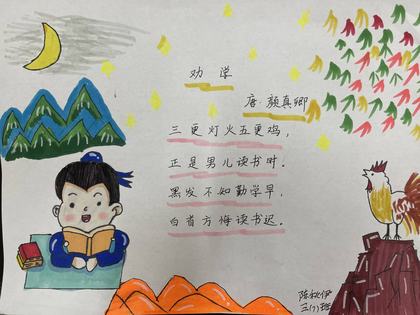 劝学
唐·颜真卿
三更灯火五更鸡,
正是男儿读书时。
黑发不知勤学早,
白首方悔读书迟。
陈秋伊
三(7)班